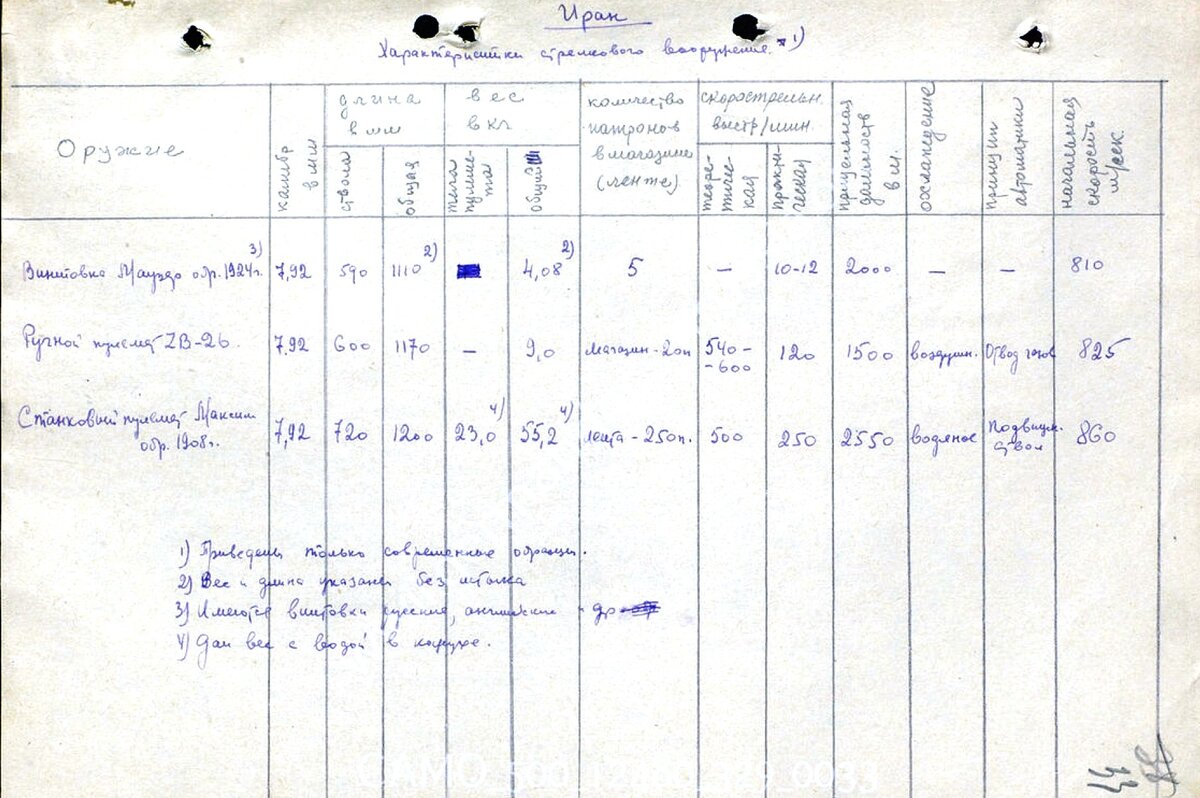 Иран
Характеристики стрелкового вооружения. 1)
Оружие | калибр в мм | длина в мм | вес в кг | количество патронов в магазине (ленте) | скорострельн. выстр/мин. | прицельная дальность в м. | охлаждение | принцип автоматики | начальная скорость м/сек.
ствола | общая | тела пулемета | общий | теоретическая | практическая
Винтовка Маузер обр. 1924г. 3) | 7,92 | 590 | 1110 2) | 4,08 2) | 5 | — | 10-12 | 2000 | — | — | 810
Ручной пулемет ZB-26. | 7.92 | 600 | 1170 | — | 9,0 | магазин-20п | 540-600 | 120 | 1500 | воздушн. | Отвод газов | 825
Станковый пулемет Максим
обр. 1908г. | 7,92 | 720 | 1200 | 23,0 4) | 55,2 4) | лента-250п. | 500 | 250 | 2550 | водяное | Подвижн. ствол | 860
1) Приведены только современные образцы.
2) Вес и длина указаны без штыка
3) Имеются винтовки русские, английские и др
4) Дан вес с водой в кожухе.